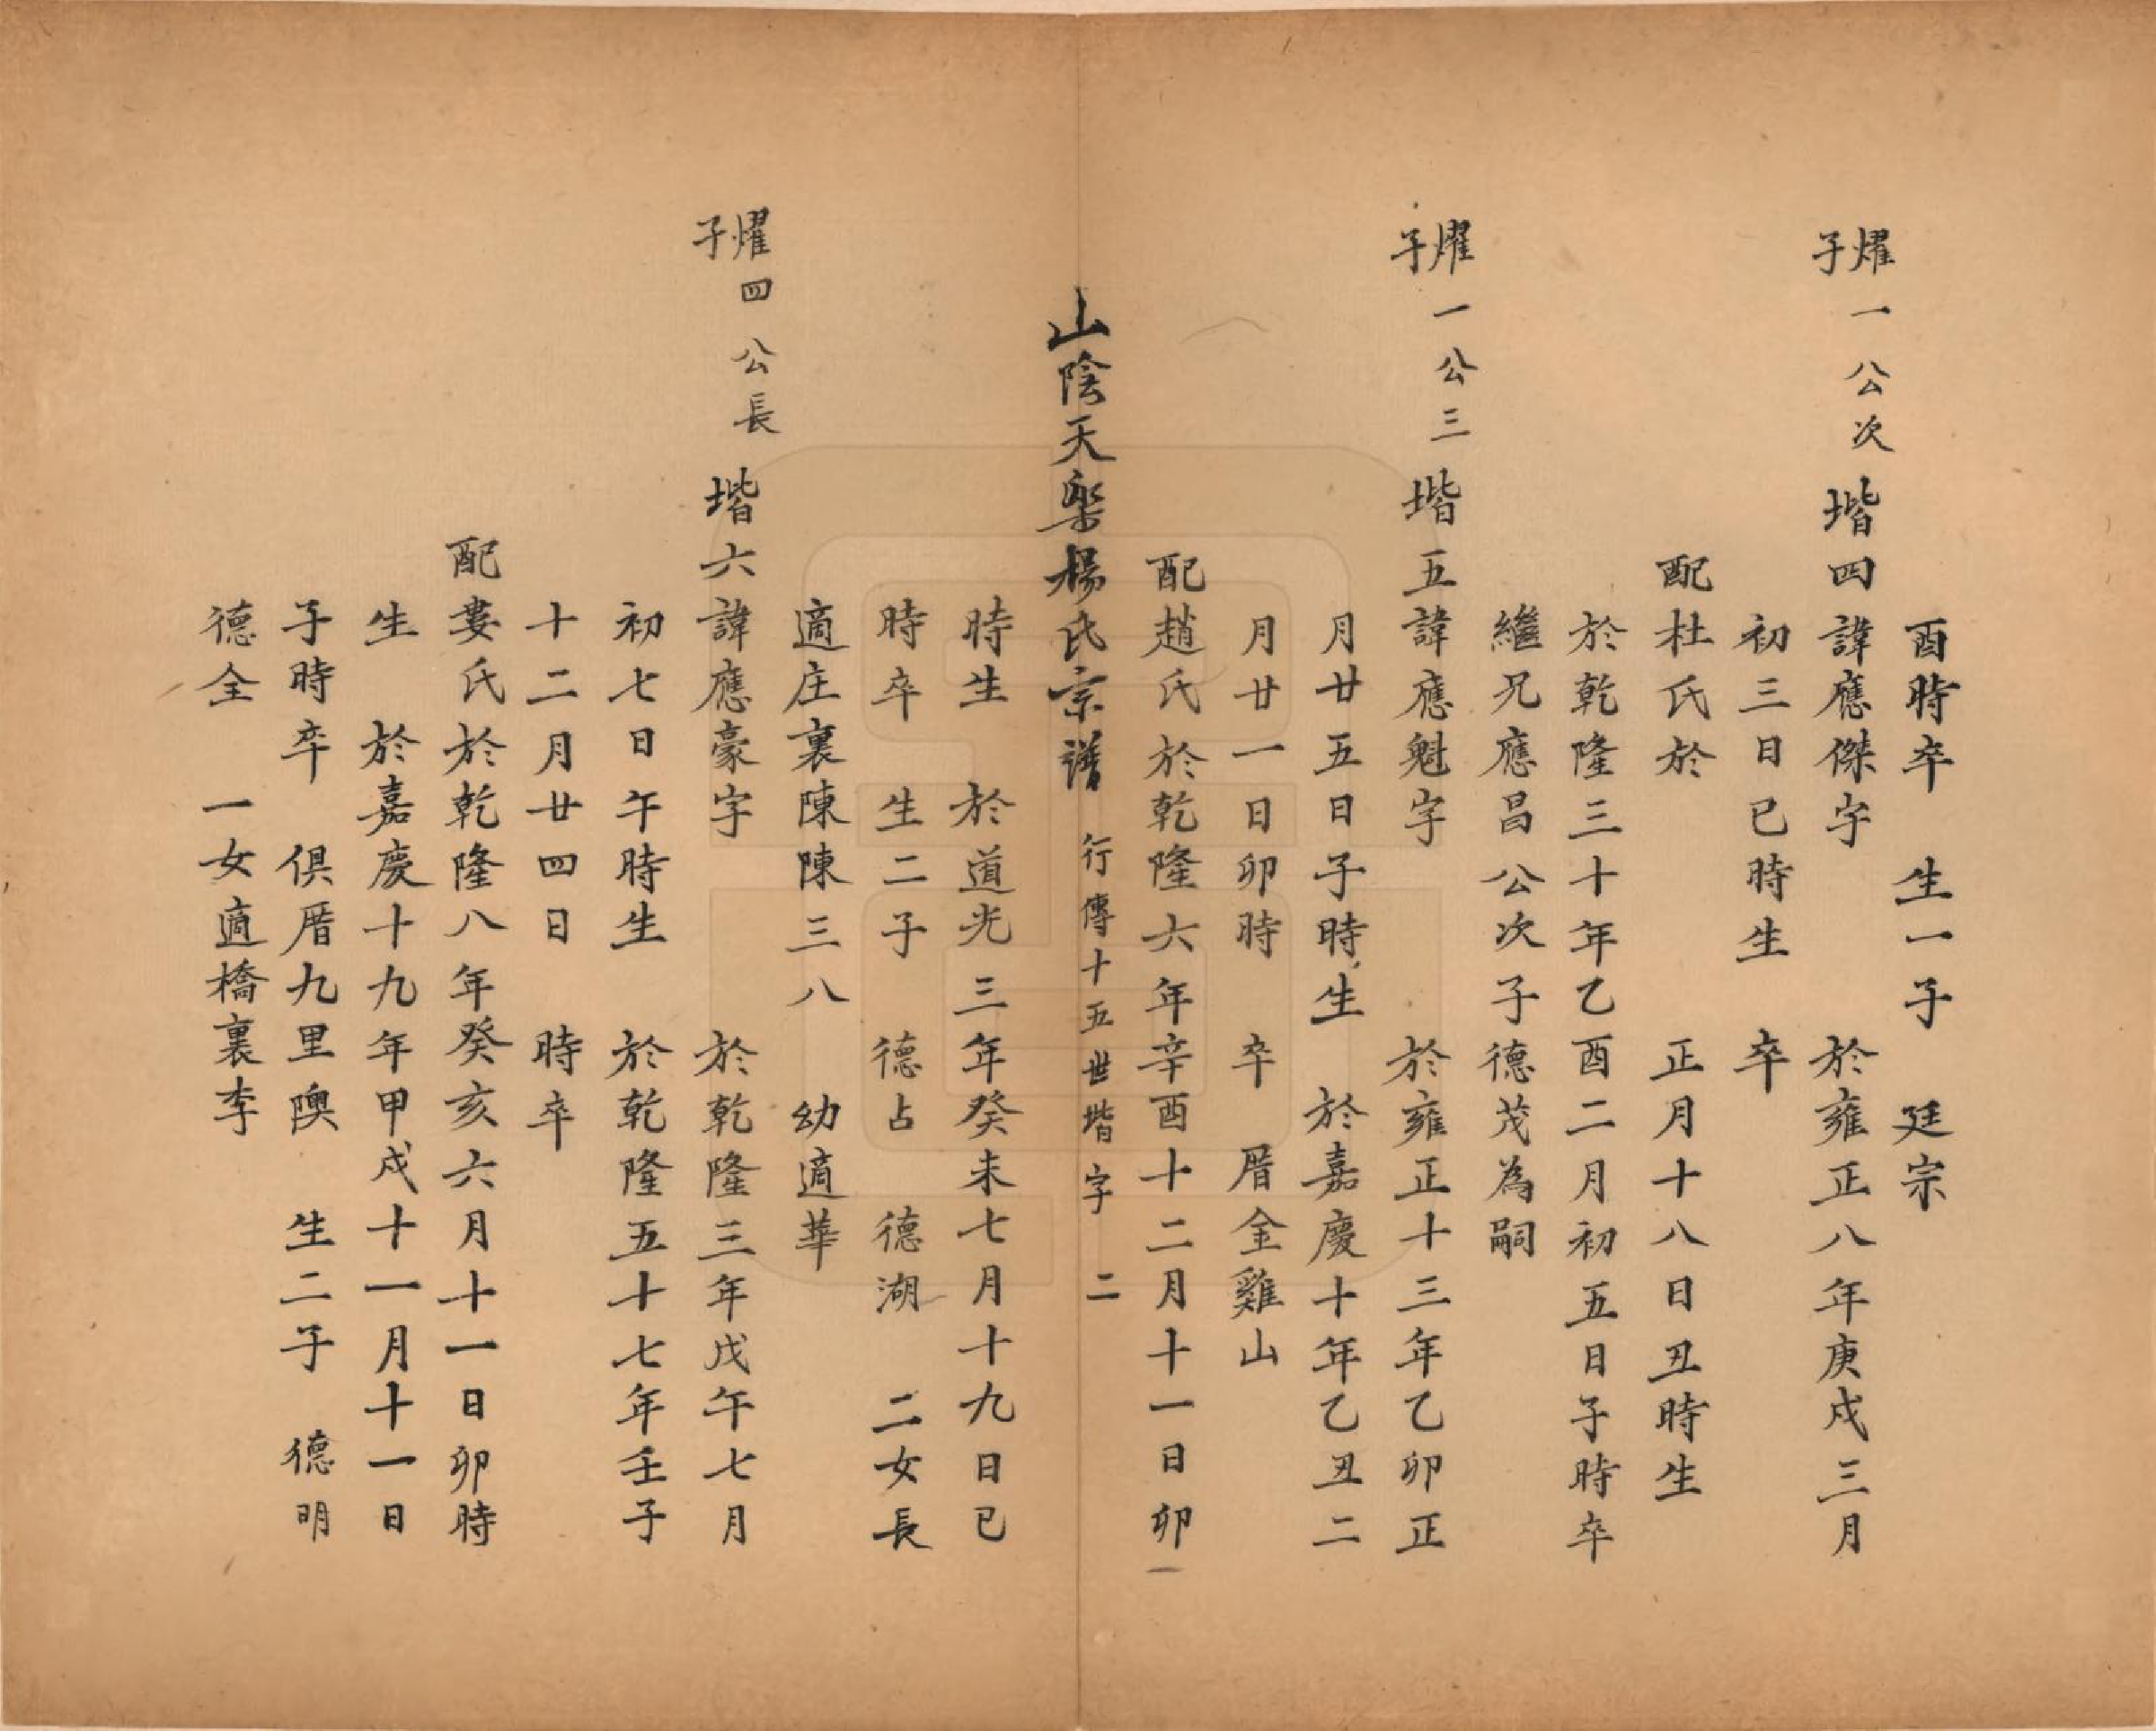 酉時卒　生一子　廷宗
燿一公次子　堦四諱應傑字　於雍正八年庚戌三月
初三日已時生　卒
配杜氏於　正月十八日丑時生
於乾隆三十年乙酉二月初五日子時卒
繼兄應昌公次子德茂為嗣
燿一公三子　堦五諱應魁字　於雍正十三年乙卯正
月廿五日子時生　於嘉慶十年乙丑二
月廿一日卯時　卒　厝金雞山
配趙氏於乾隆六年辛酉十二月十一日卯
山陰天樂楊氏宗譜　行傳十五世堦字　二
時生　於道光三年癸未七月十九日已
時卒　生二子　德占　德湖　二女長
適庄裏陳陳三八　幼適華
燿四公長子　堦六諱應豪字　於乾隆三年戊午七月
初七日午時生　於乾隆五十七年壬子
十二月廿四日　時卒
配婁氏於乾隆八年癸亥六月十一日卯時
生　於嘉慶十九年甲戌十一月十一日
子時卒　俱厝九里隩　生二子　德明
德全　一女適橋裏李